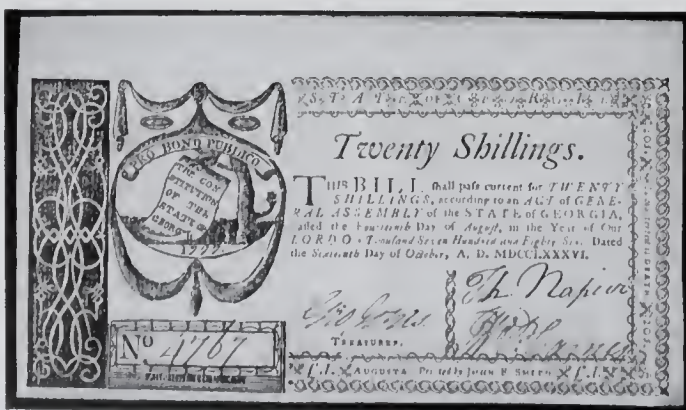 STATE OF GEORGIA
PRO BONO PUBLICO
THE CON
STITUTION
OF THE
STATE OF
GEORGIA
1777
No 4767
Twenty Shillings.
THIS BILL shall pass current for TWENTY
SHILLINGS, according to an ACT of GENE-
RAL ASSEMBLY of the STATE of GEORGIA,
passed the Fourteenth Day of August, in the Year of Our
LORD One Thousand Seven Hundred and Eighty Six. Dated
the Sixteenth Day of October, A. D. MDCCLXXXVI.
Th Napier
TREASURER.
L1. AUGUSTA Printed by JOHN E SMITH L1.